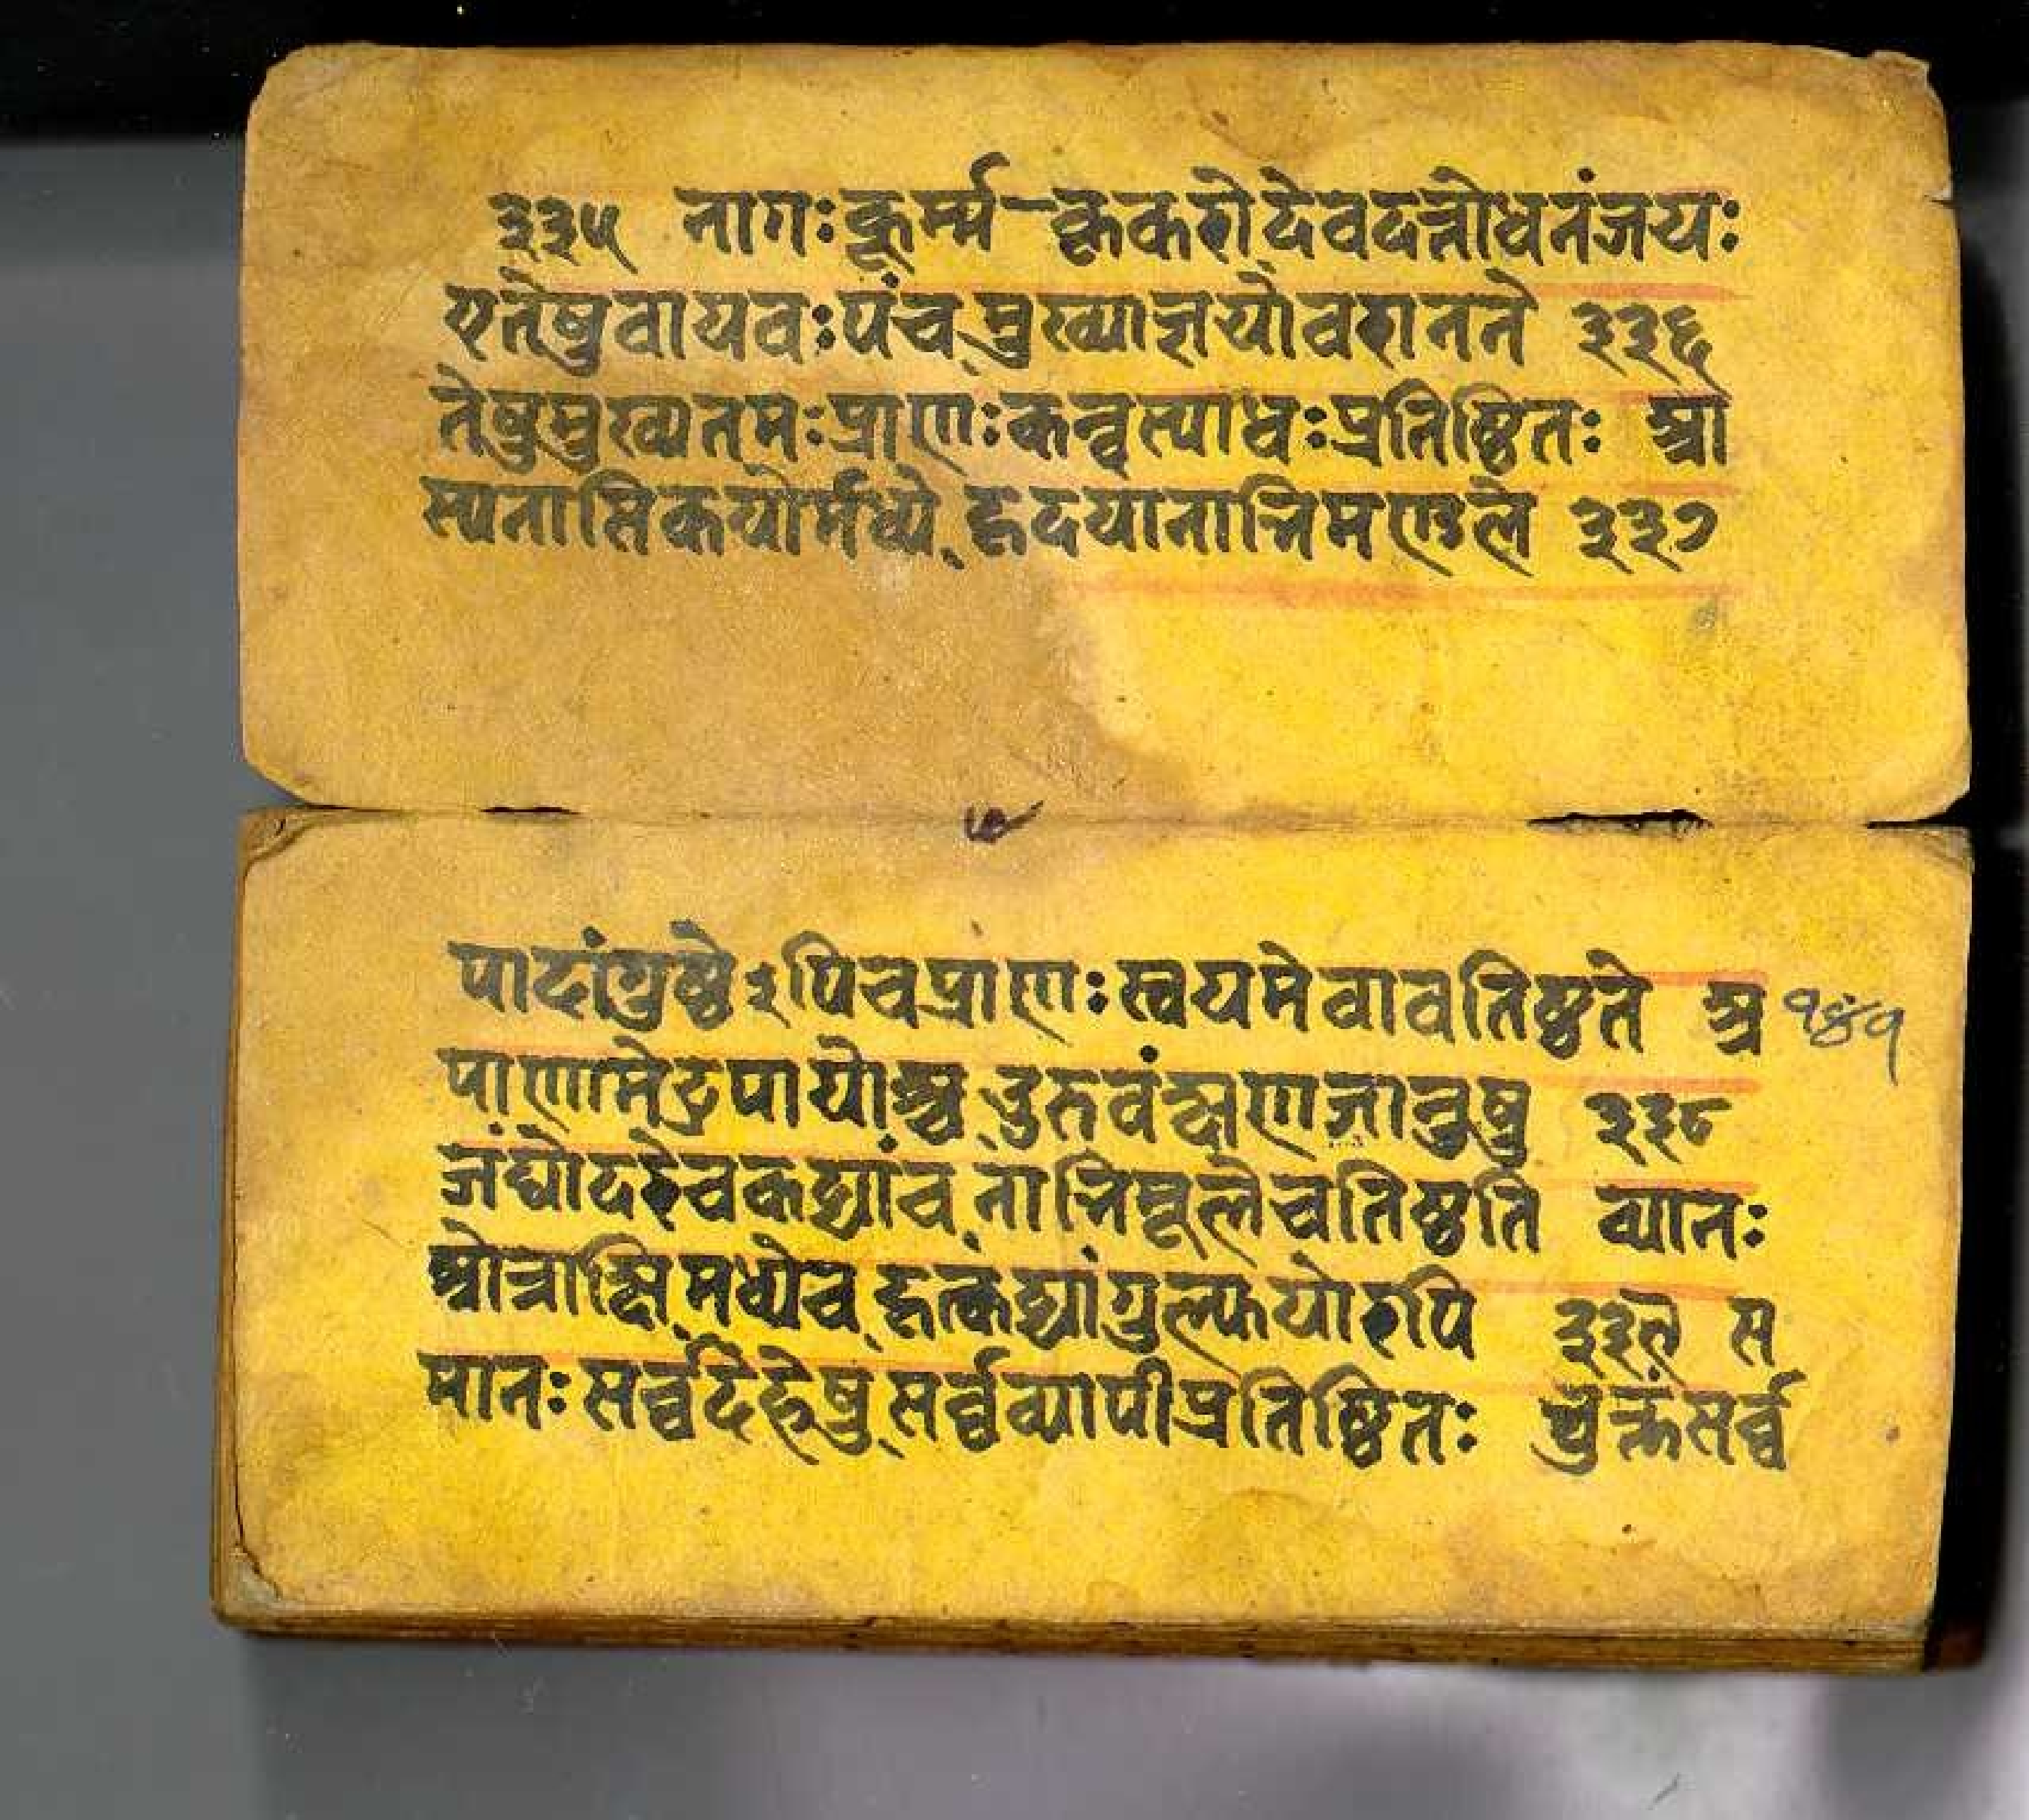 ३३५ नागःकूर्म्म-कृकरोदेवदत्तोधनंजयः
एतेषुवायवःपंच मुख्याज्ञयोवरानने ३३६
तेषुमुख्यतमःप्राणःकन्दस्याधःप्रतिष्ठितः आ
स्यनासिकयोर्मध्ये हृदयानाभिमण्डले ३३७
पादांगुष्ठेऽपिचप्राणःस्वयमेवावतिष्ठते अ
१४१
पाणामेढ्रपायोश्च उरुवंक्षणजानुषु ३३८
जंघोदरेचकट्यांच नाभिमूलेचतिष्ठति व्यानः
श्रोत्राक्षिमध्येच हृत्कंट्यांगुल्फयोरपि ३३९ स
मानःसर्व्वदेहेषु सर्व्वव्यापीप्रतिष्ठितः भुक्तंसर्व्व